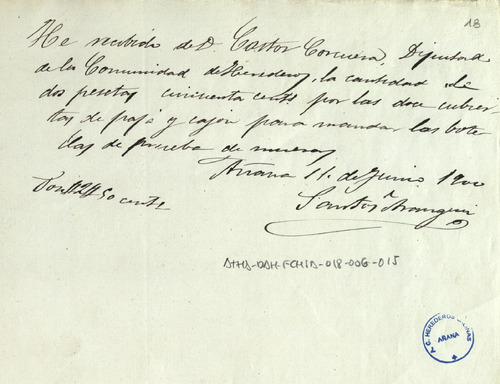 18
He recibido de D. Castor Corcuera, Diputado
de la Comunidad de Herederos, la cantidad de
dos pesetas cincuenta cents por las doce cubier-
tas de paja y cajon para mandar las bote
llas de prueba de muera
Añana 11 de Junio 1900
Son 2 50 cents
Santos Aranguiz
ATHA-DAH-FCHIA-018-006-015
C. HEREDEROS
AÑANA